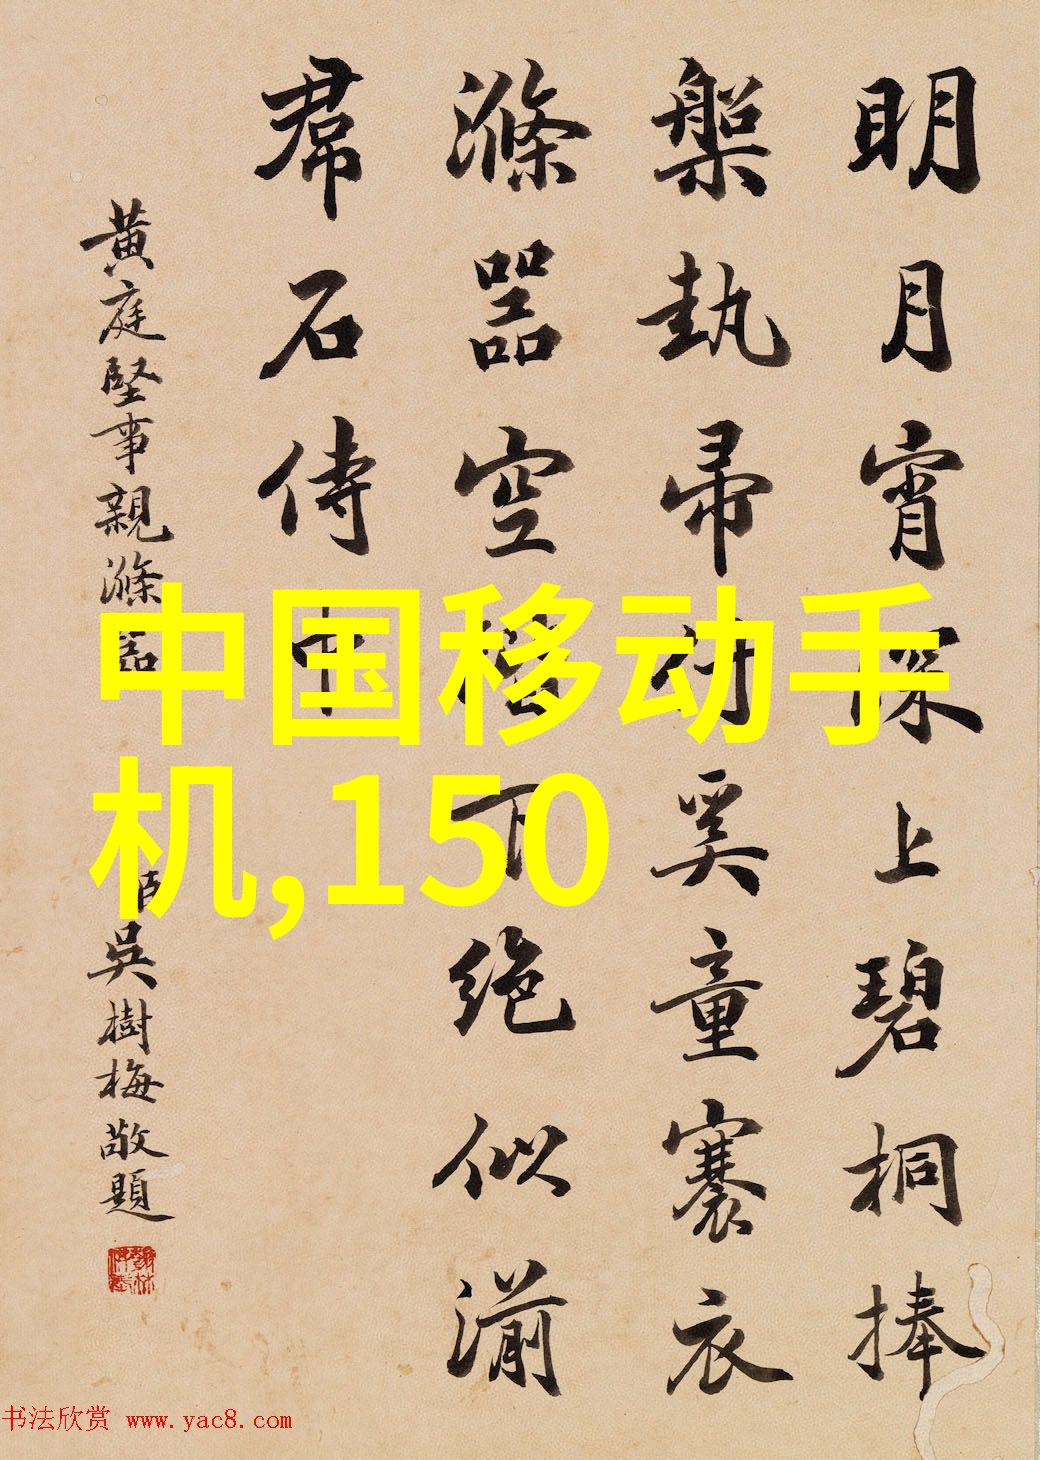 明月宵深上碧桐捧
槃執帚付奚童褰衣
滌器空階下绝似湔
帬石侍中
黄庭堅事親滌器
臣吳樹梅敬題
中国移动手
机,150
书法欣赏 www.yac8.com